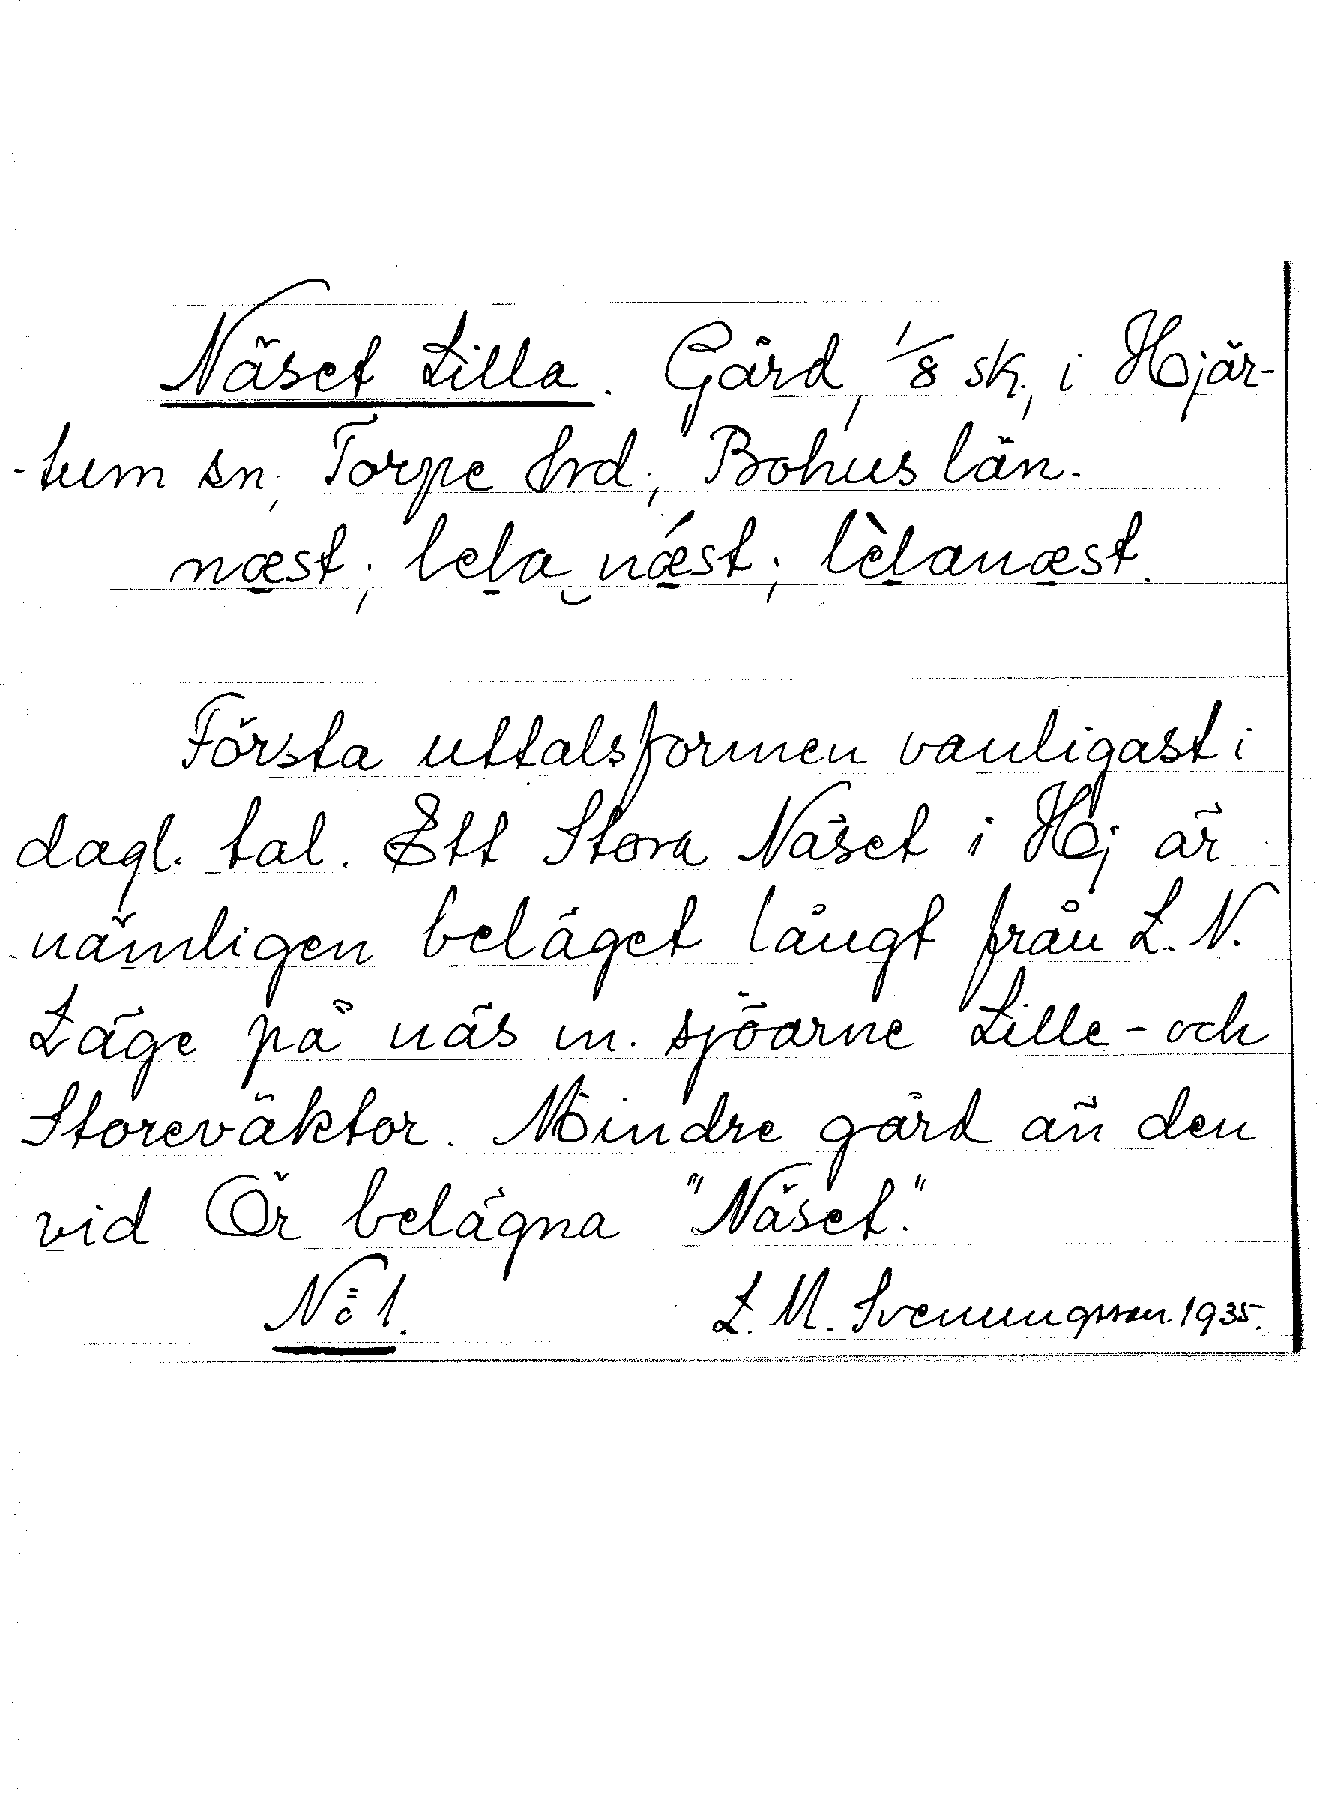 Näset Lilla. Gård, 1/8 sk, i Hjär-
-tum sn, Torpe hrd, Bohus län.
næst; lela næ´st; lèlanæst.
Första uttalsformen vanligast i
dagl. tal. Ett Stora Näset i Hj är
nämligen beläget långt från L. N.
Läge på näs m. sjöarne Lille- och
Storeväktor. Mindre gård än den
vid Ör belägna "Näset."
No 1. L. M. Svenungsson. 1935.